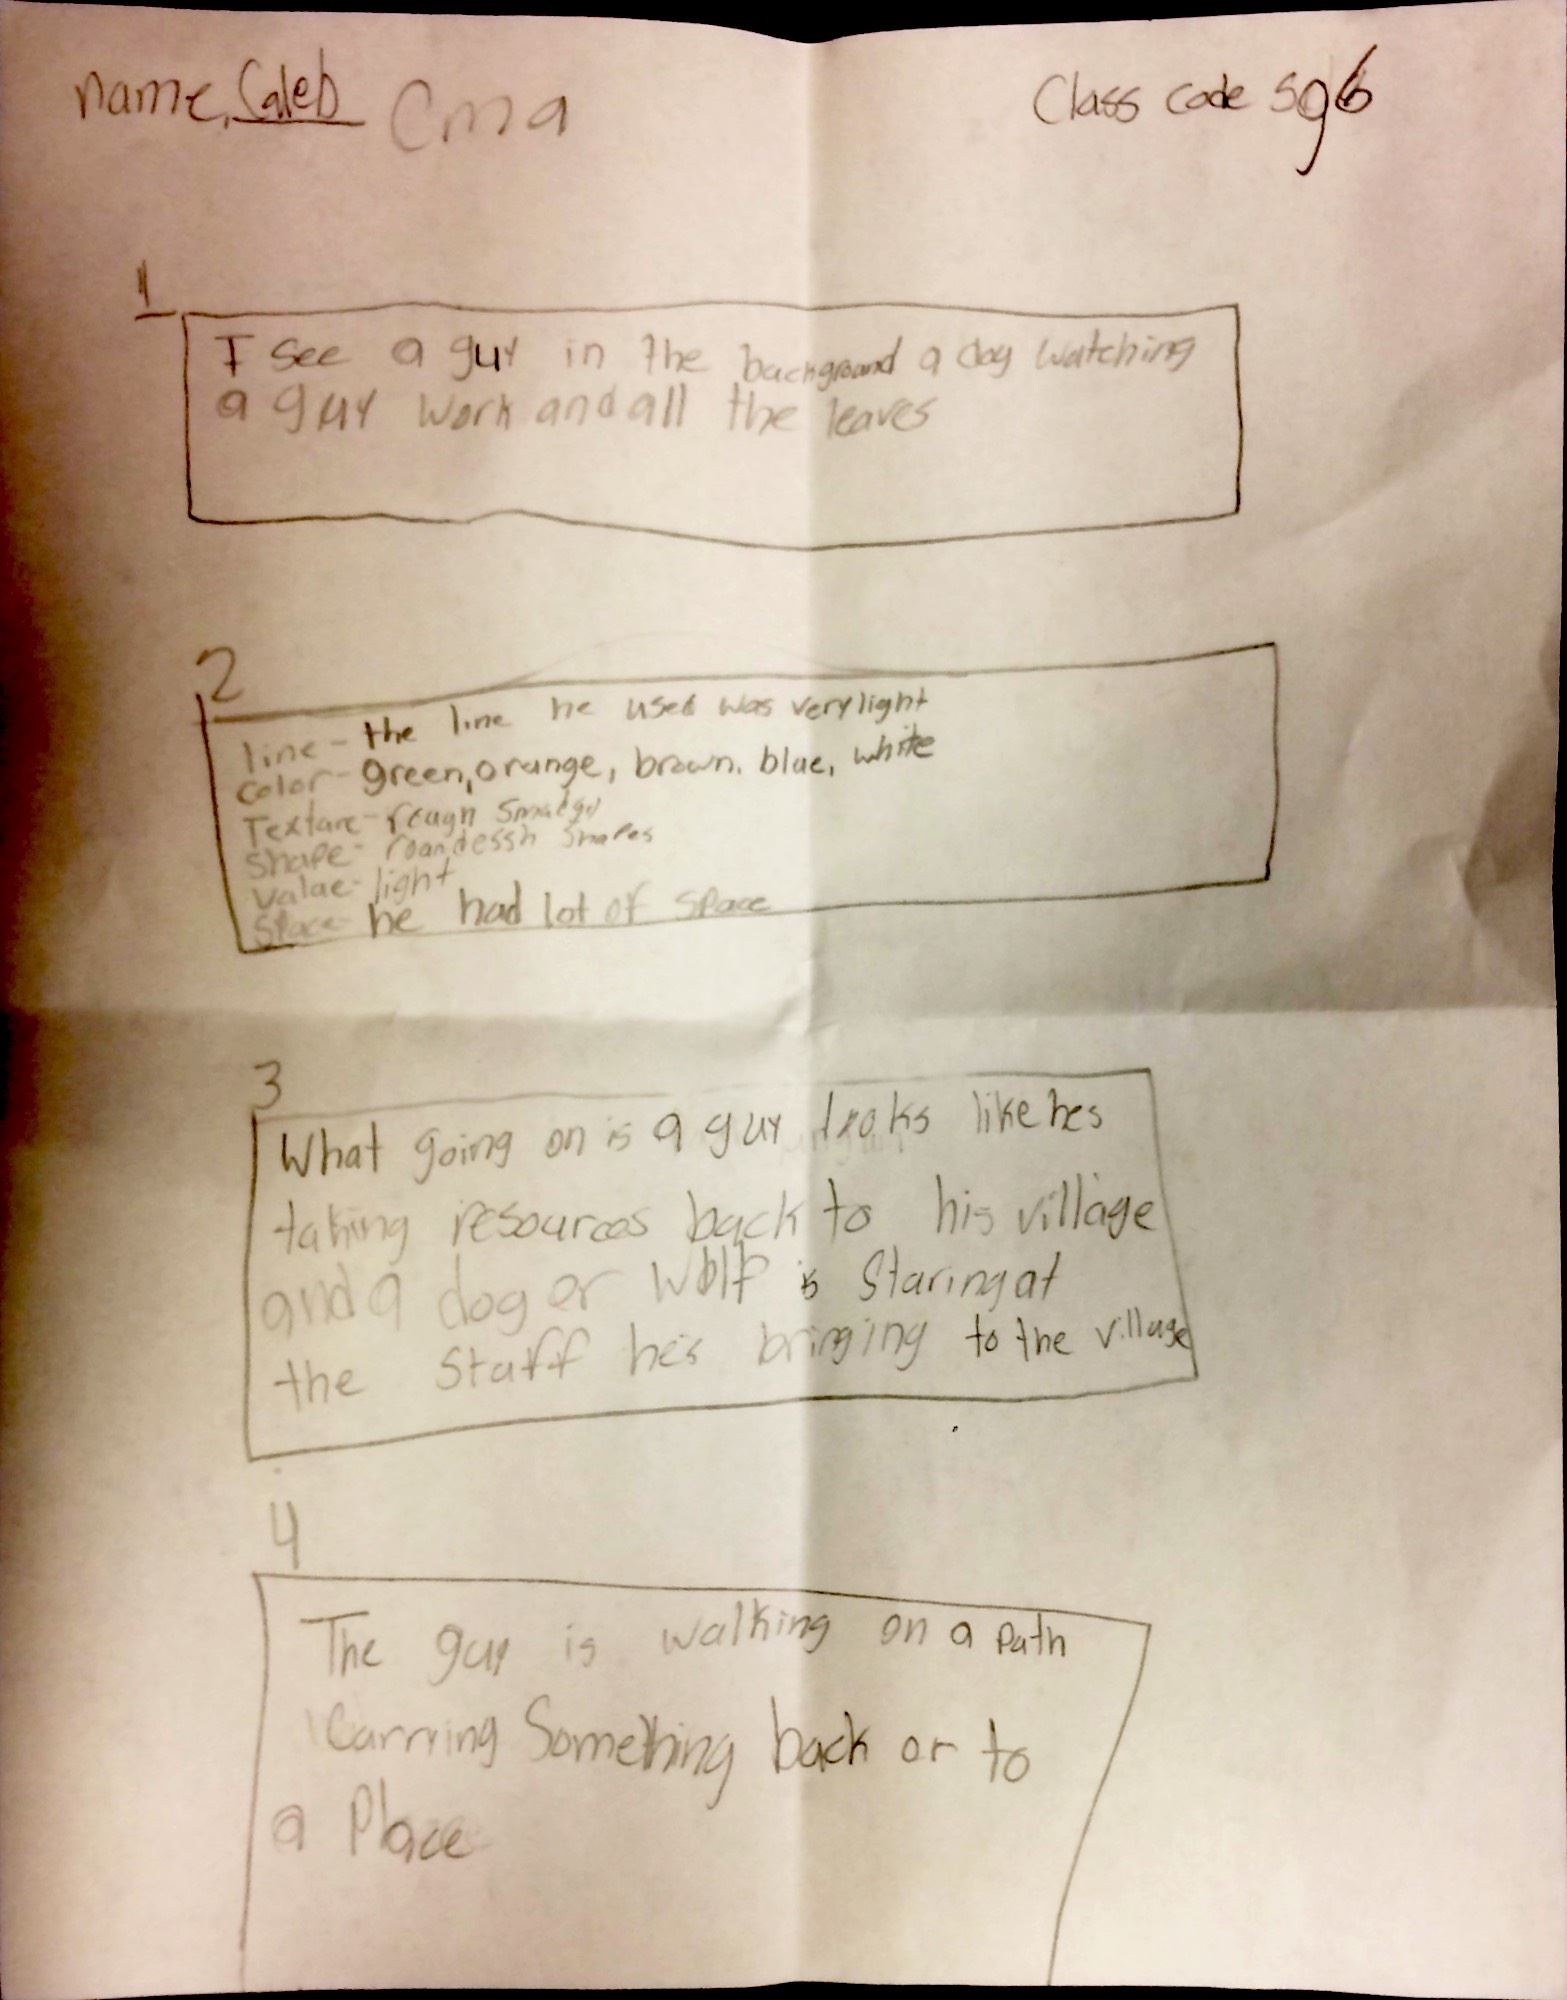 name, Caleb Cma
Class code sg6
1
I see a guy in the background a dog watching
a guy work and all the leaves
2
line - the line he used was very light
color - green, orange, brown. blue, white
Texture - rough
shape - shapes
value - light
Space - he had lot of space
3
What going on is a guy looks like hes
taking resources back to his village
and a dog or wolf is staring at
the stuff he's bringing to the village
4
The guy is walking on a path
carrying something back or to
a Place